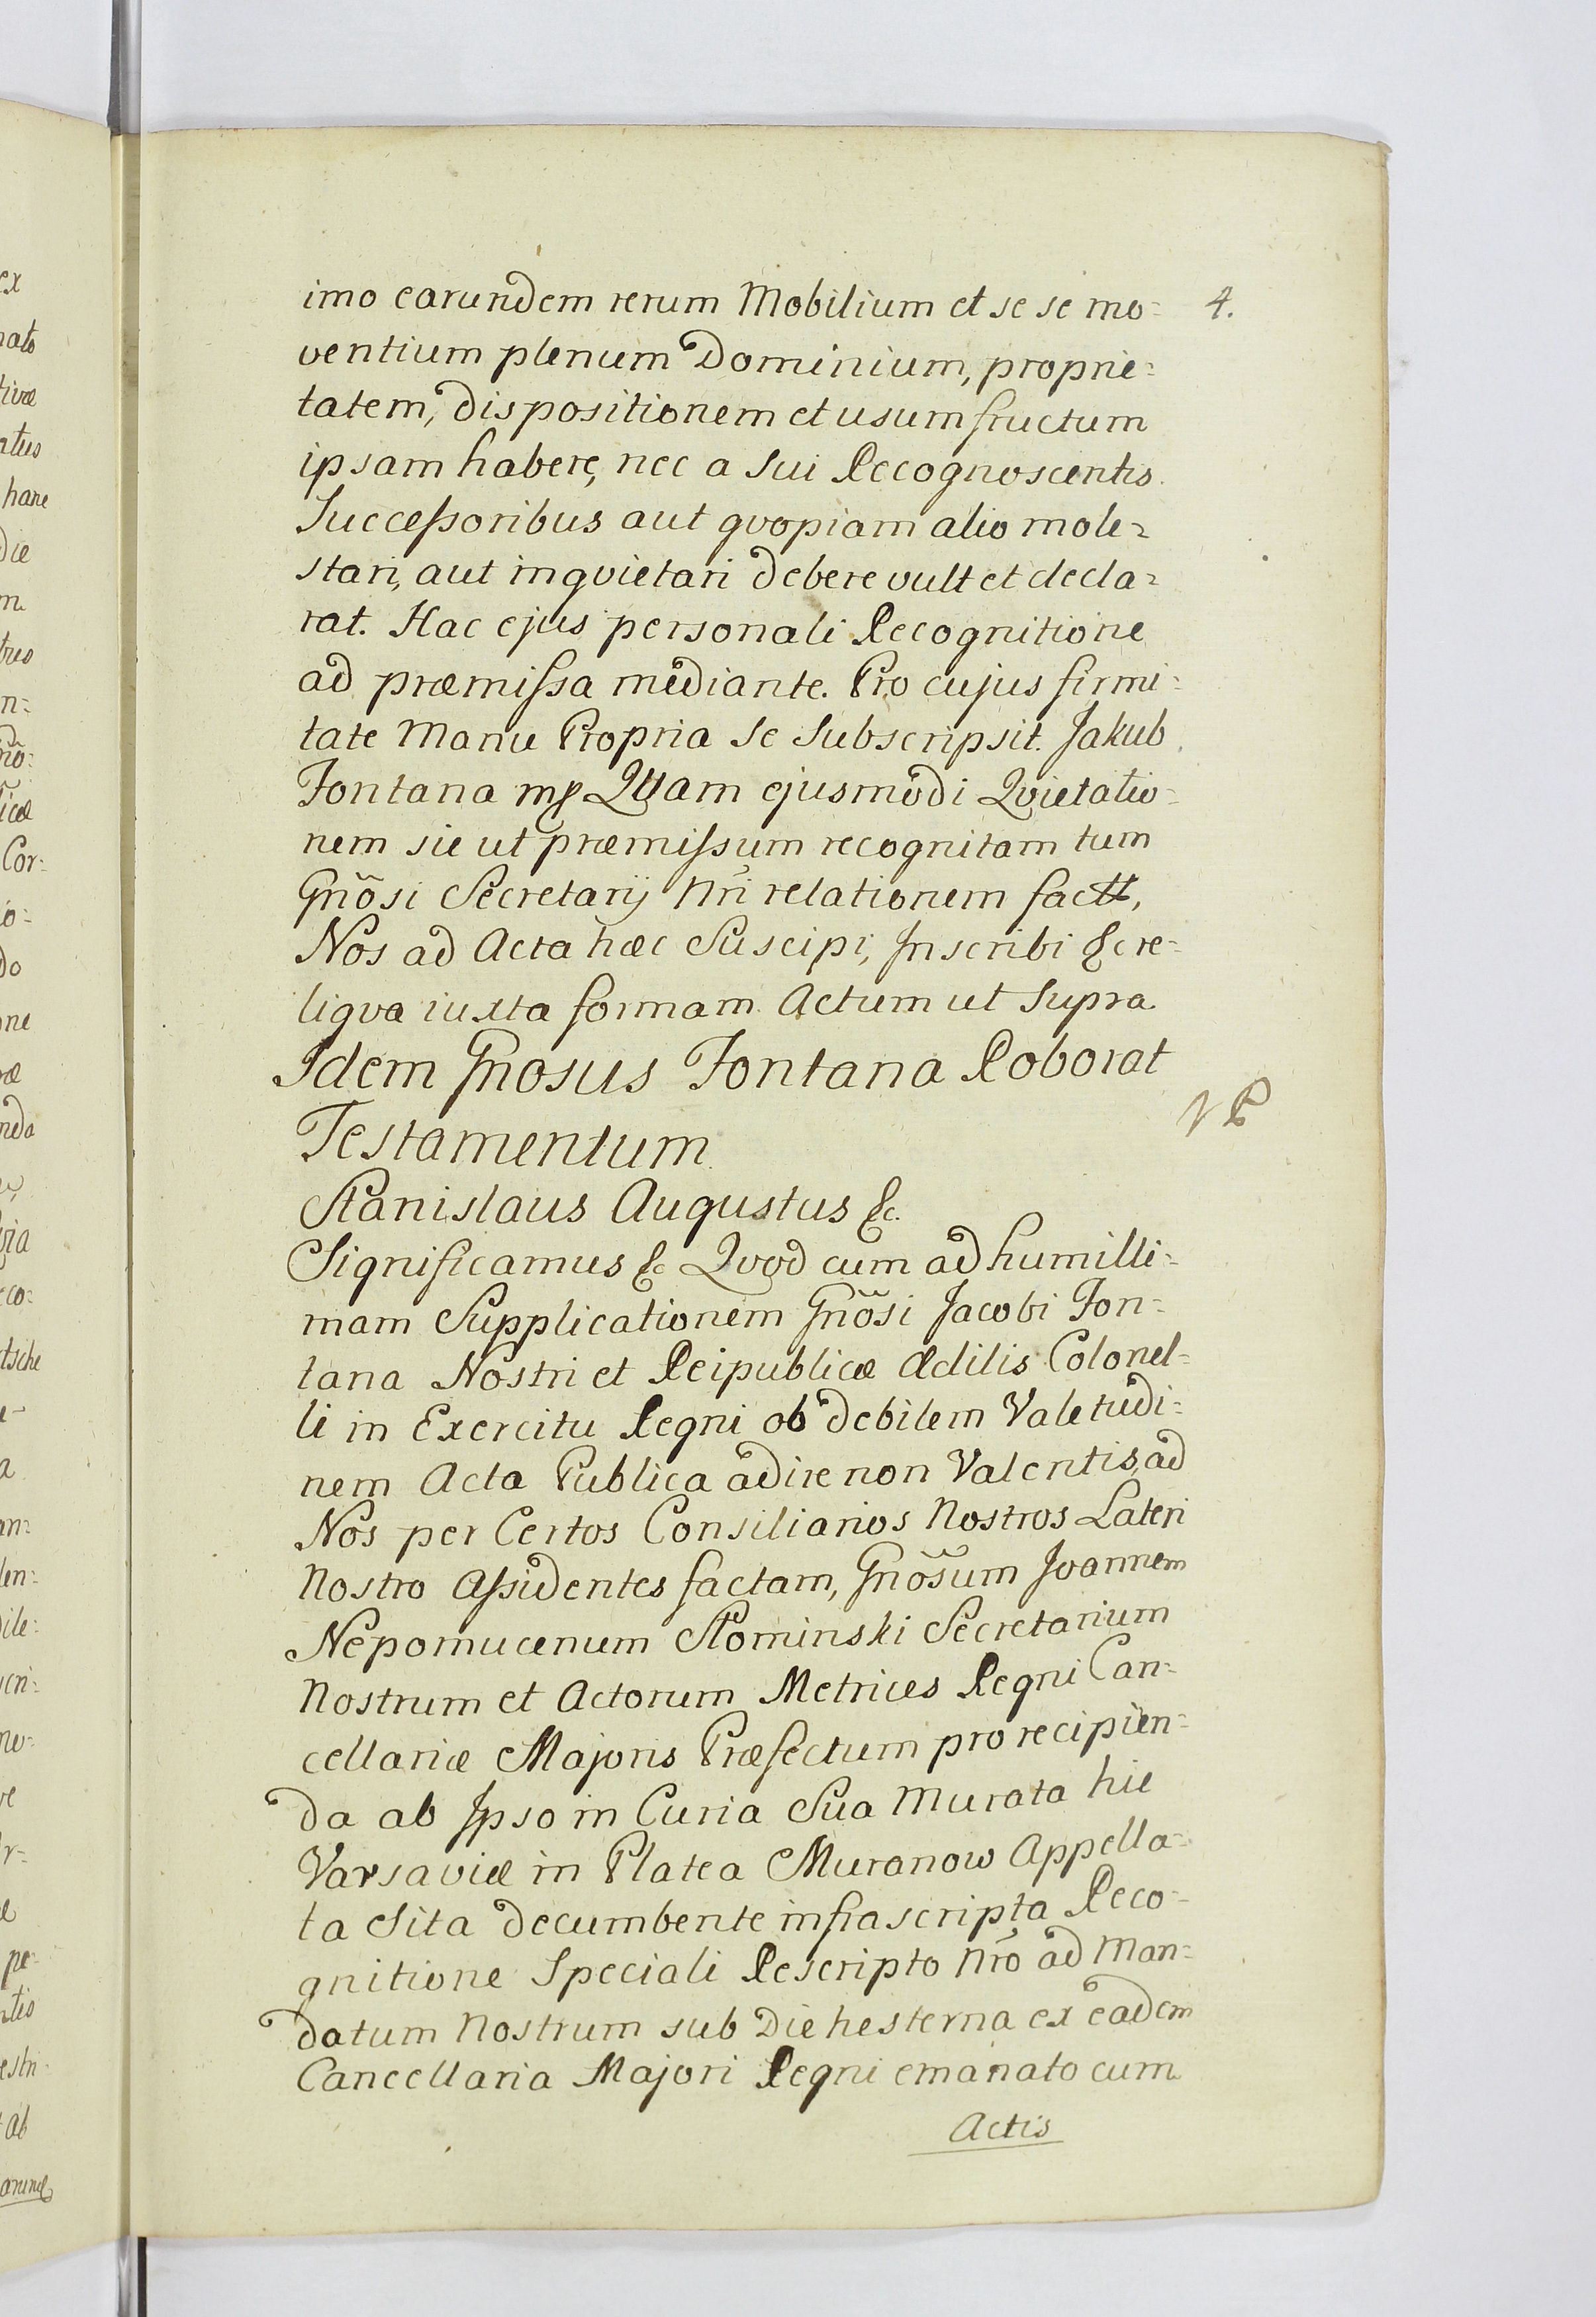 imo earundem rerum Mobilium et se se mo= 4.
ventium plenum Dominium, proprie=
tatem, dispositionem et usumfructum
ipsam habere, nec a Sui Recognoscentis
Successoribus aut qvopiam alio mole=
stari, aut inqvietari debere vult et decla=
rat. Hac ejus personali Recognitione
ad præmissa mediante. Pro cujus firmi=
tate Manu Propria Se Subscripsit. Jakub
Fontana mp Quam ejusmodi Qvietatio=
nem sic ut præmissum recognitam tum
Gnõsi Secretarij Nr̃i relationem factt,
Nos ad Acta hæc Suscipi, Inscribi &c re=
liqva iuxta formam. Actum ut Supra
Idem Gnosus Fontana Roborat
Testamentum
Stanislaus Augustus &c.
Significamus &c Qvod cum ad humilli=
mam Supplicationem Gnõsi Jacobi Fon=
tana Nostri et Reipublicæ Ædilis Colonel=
li in Exercitu Regni ob debilem Valetudi=
nem Acta Publica adire non Valentis, ad
Nos per Certos Consiliarios Nostros Lateri
Nostro Assidentes factam, Gnõsum Joannem
Nepomucenum Słominski Secretarium
Nostrum et Actorum Metrices Regni Can=
cellariæ Majoris Præfectum pro recipien=
da ab Ipso in Curia Sua Murata hic
Varsaviæ in Platea Muranow Appella=
ta Sita decumbente infrascripta Reco=
gnitione Speciali Rescripto Nr̃o ad Man=
datum Nostrum sub Die hesterna ex eadem
Cancellaria Majori Regni emanato cum
Actis